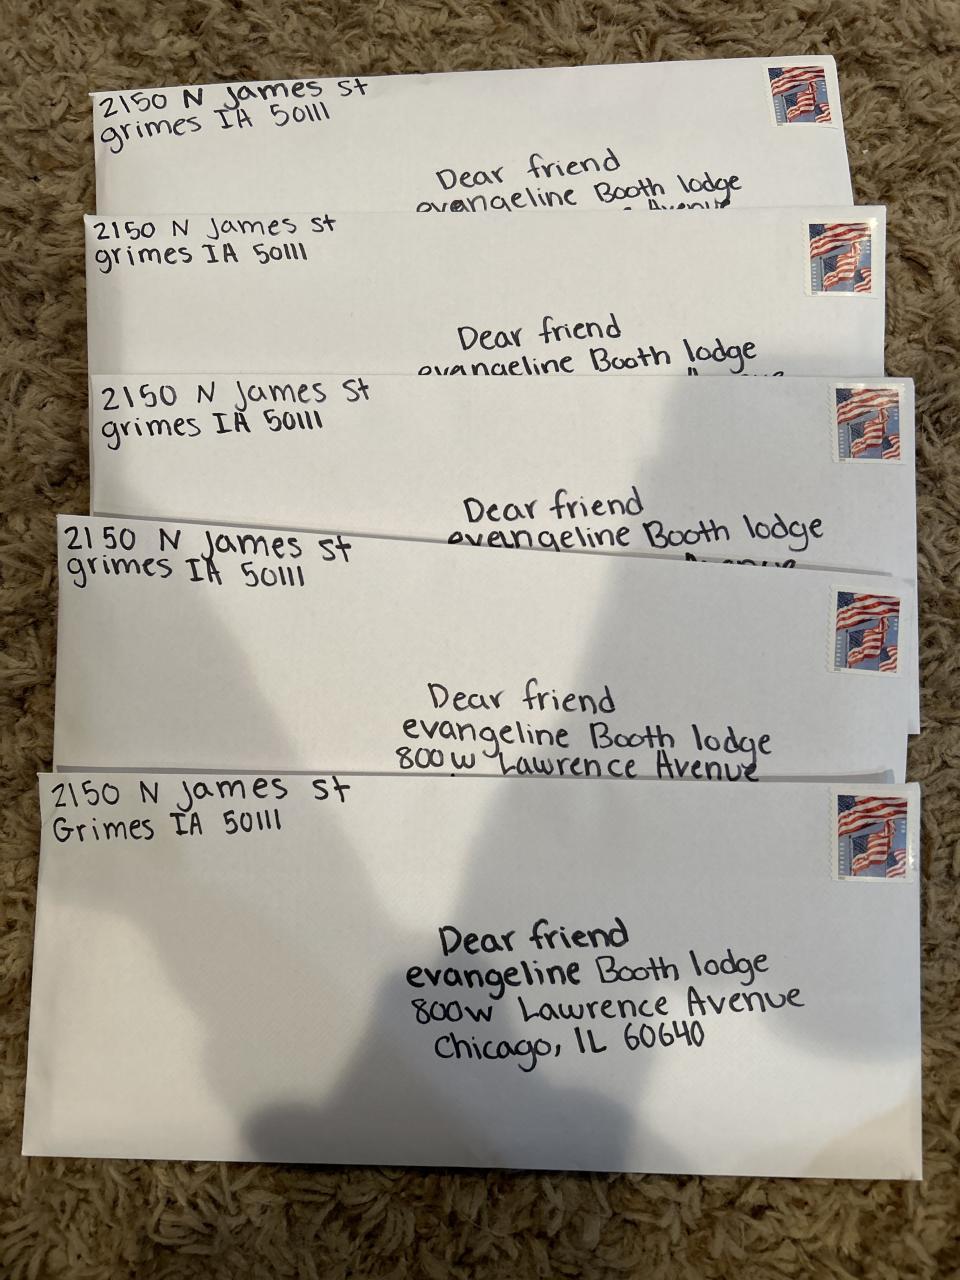 2150 N James St
grimes IA 50111
Dear friend
evangeline Booth lodge
Avenue
2150 N James St
grimes IA 50111
Dear friend
evangeline Booth lodge
2150 N James St
grimes IA 50111
Dear friend
evangeline Booth lodge
Avenue
2150 N James St
grimes IA 50111
Dear friend
evangeline Booth lodge
800 w Lawrence Avenue
2150 N James St
Grimes IA 50111
Dear friend
evangeline Booth lodge
800w Lawrence Avenue
Chicago, IL 60640